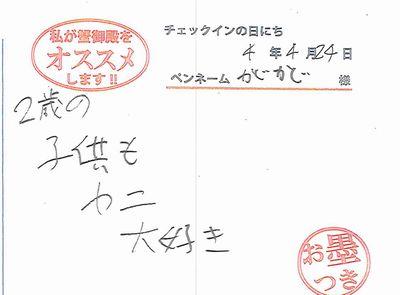 私が蟹御殿を
オススメ
します!!
チェックインの日にち
4 年 4 月 24 日
ペンネーム かじかじ 様
2歳の
子供も
カニ
大好き
お墨
つき